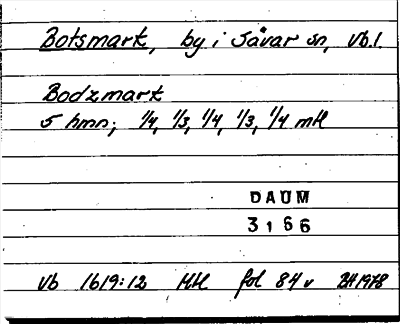 Botsmark, by i Sävar sn, Vb.l.
Bodzmark
5 hmn; 1/4, 1/3, 1/4, 1/3, 1/4 mtl
DAUM
3166
Vb 1619:12 Mtl fol 84v BH 1978